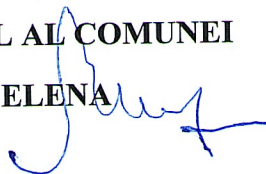 AL COMUNEI
ELENA